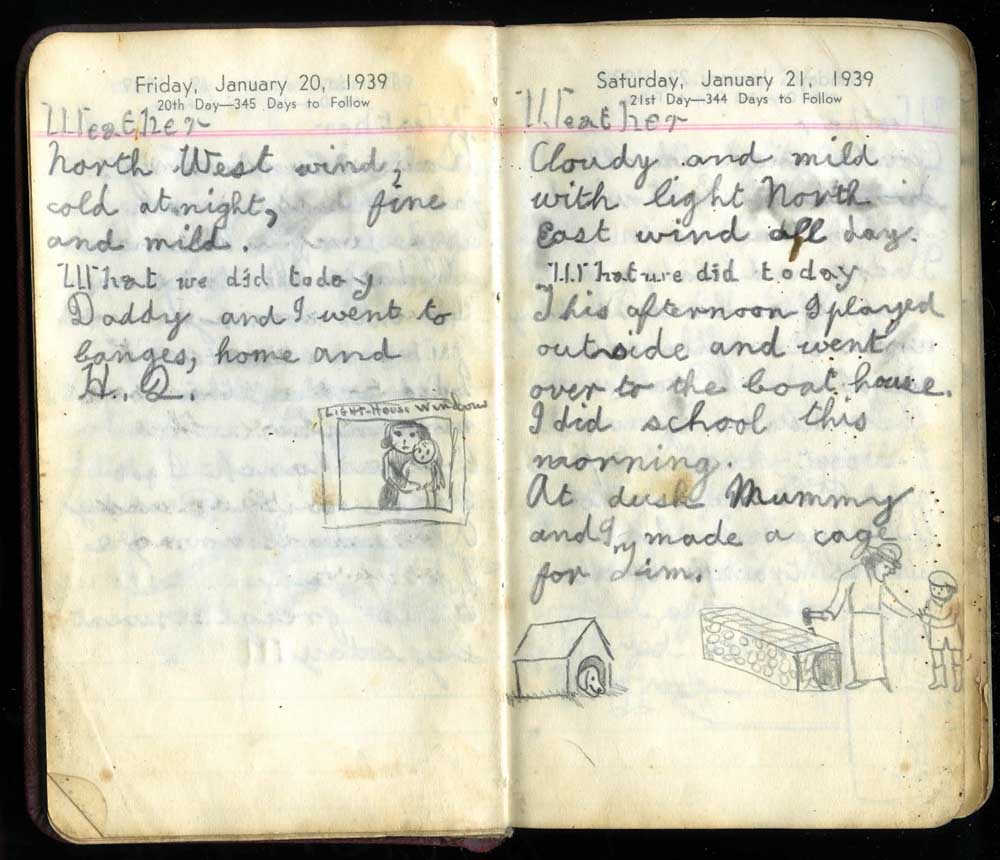 Friday, January 20, 1939
20th Day—345 Days to Follow
Weather
North West wind,
cold at night, fine
and mild.
What we did today
Daddy and I went to
banges, home and
H. Q.
LIGHT-HOUSE WINDOW
Saturday, January 21, 1939
21st Day—344 Days to Follow
Weather
Cloudy and mild
with light North
East wind all day.
What we did today
This afternoon I played
outside and went
over to the boat house.
I did school this
morning.
At dusk Mummy
and I made a cage
for